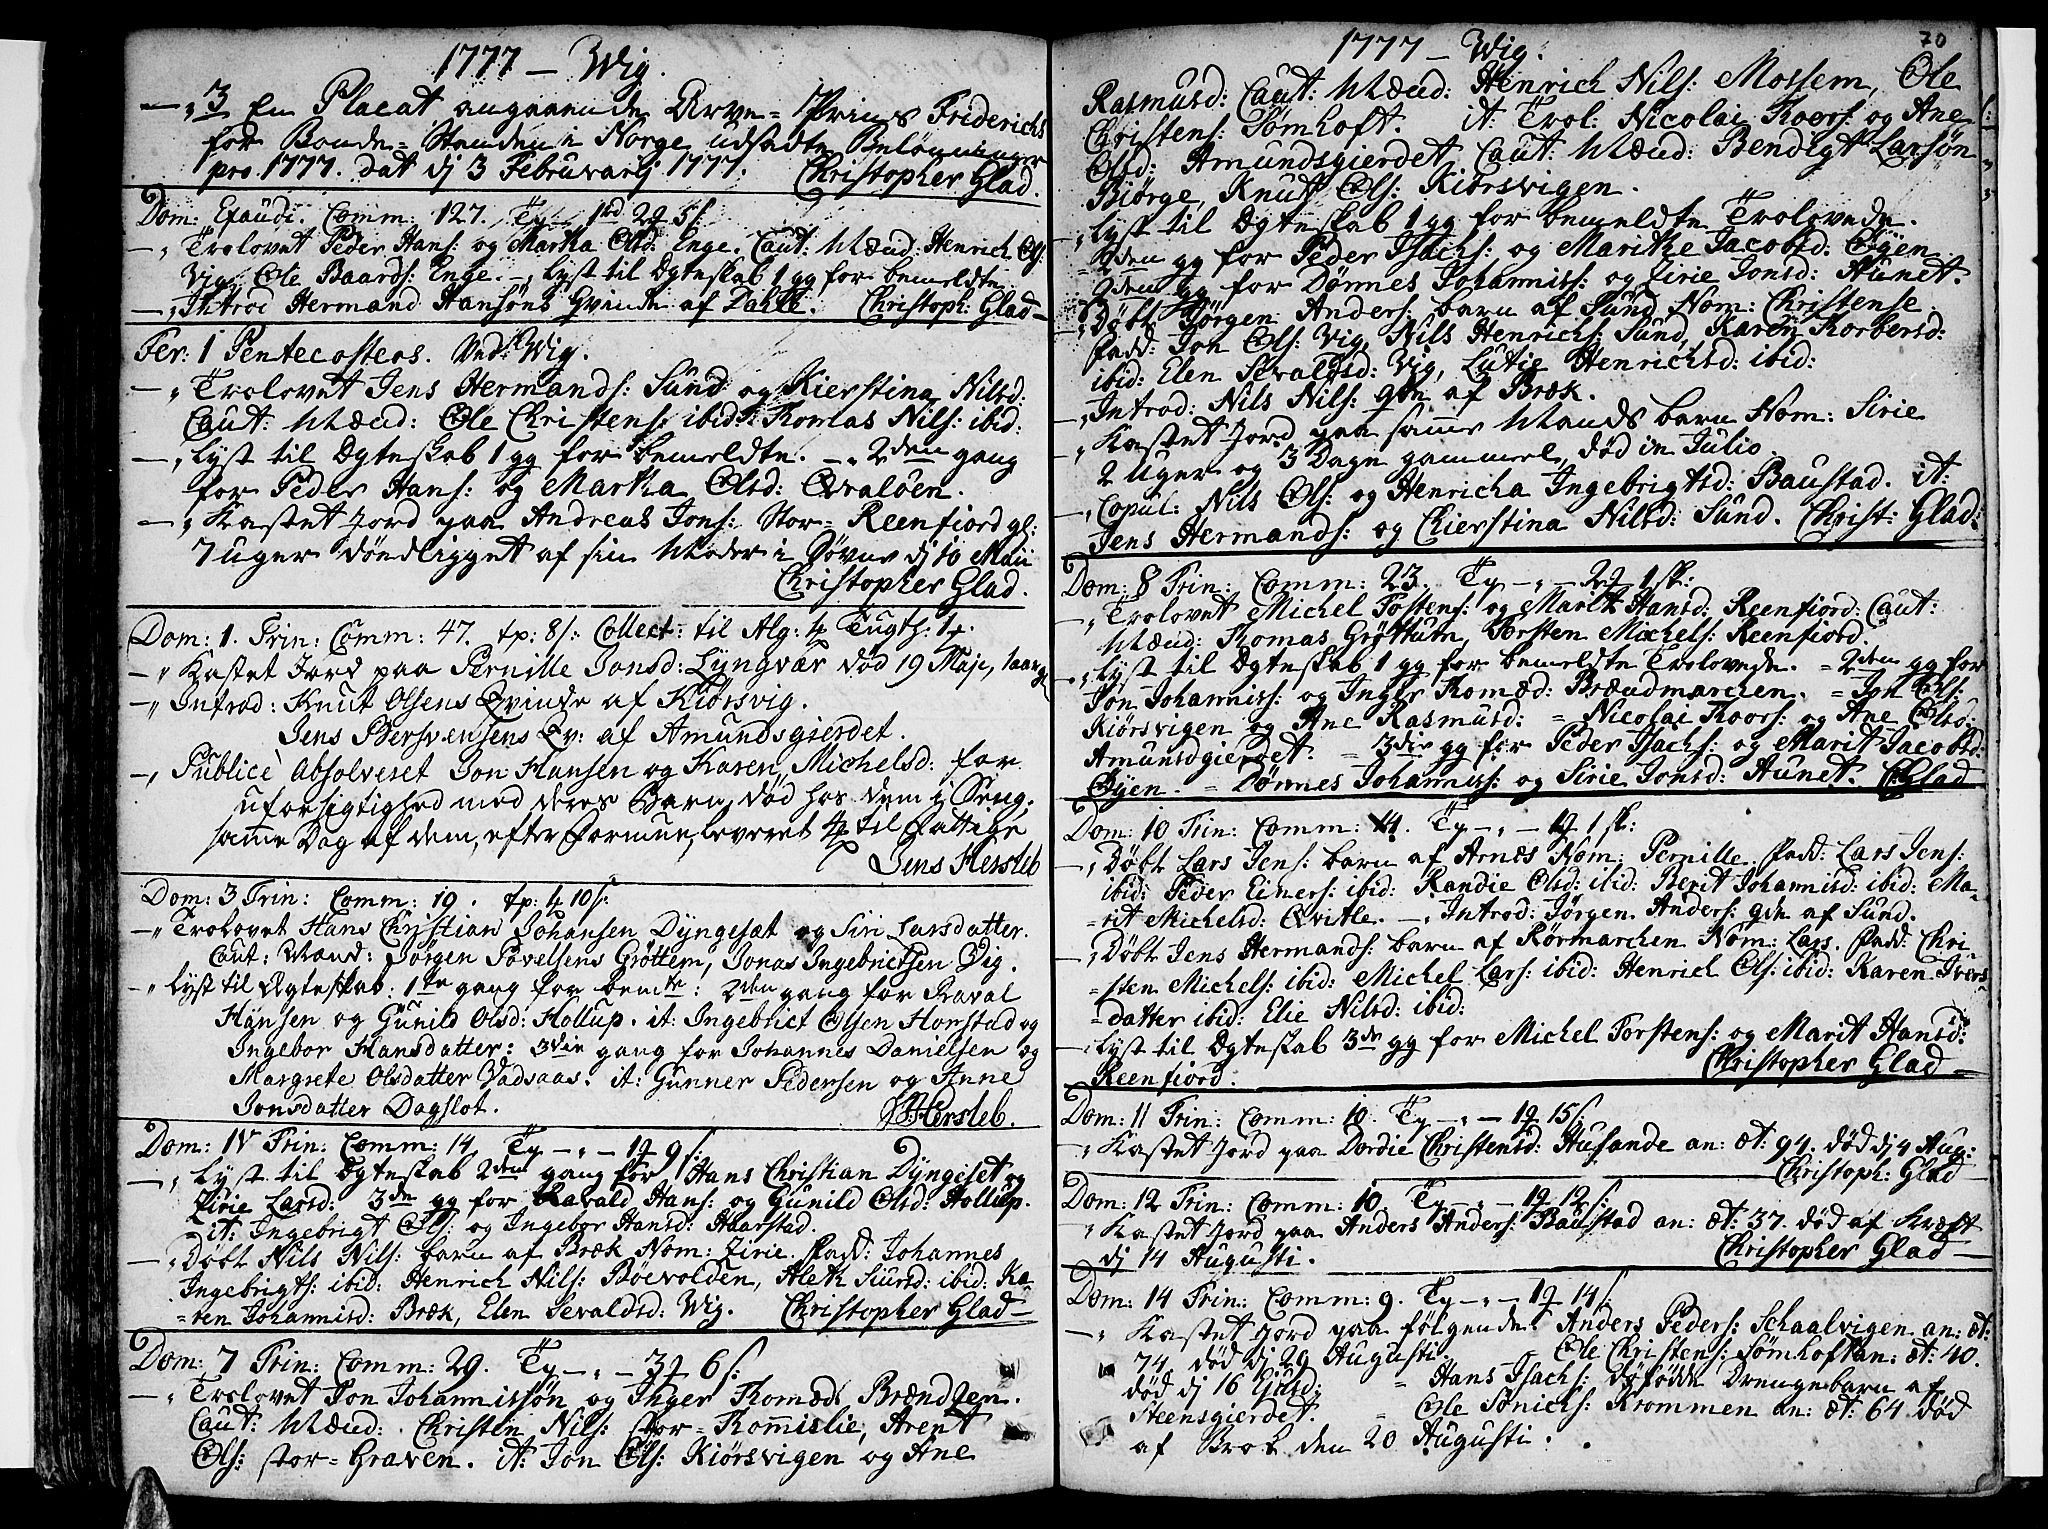 1777 – Wig.
– " 3 En Placat angaaende Arve-Prins Friderichs
for Bonde-Standen i Norge udsadte Belønninger
pro 1777. dat dj 3 Februarij 1777. Christopher Glad.
Dom: Exaudi. Comm: 127. Tp – 1rd 2 5s
– " Trolovet Peder Hans: og Martha Olsd: Enge. Caut: Mænd: Henrich Ols:
Vig, Ole Baards: Enge. – " Lyst til Ægteskab 1 gg for bemeldte
– " Introd Hermand Hansøns Qvinde af Dahle. Christoph: Glad –
Fer: 1 Pentecostens. Ved Wig.
– " Trolovet Jens Hermands: Sund og Kierstina Nilsd:
Caut: Mænd: Ole Christens: ibid: Thomas Nils: ibid:
– " Lyst til Ægteskab 1 gg for bemeldte. – " 2den gang
for Peder Hans: og Martha Olsd: Qvaløen.
– " Kastet Jord paa Andreas Jons: Stor-Reenfiord gl:
7 uger døndligget af sin Moder i Søvne dj 10 Maii
Christopher Glad.
Dom: 1. Trin: Comm: 47. tp: 8s: Collect: til Alg: 4 Tugth: 14.
– " Kastet Jord paa Pernille Jonsd: Lyngvær død 19 Maje, 1 aar gl
– " Introd: Knut Olsens Qvinde af Kiørsvig.
Jens Bersvensens Qv: af Amundsgierdet.
– " Publicè Absolveret Jon Hansen og Karen Michelsd: for
uforsigtighed med deres Barn, død hos dem i Seng;
samme Dag af dem, efter Formue, leveret 4 til Fattige
Jens Hersleb
Dom: 3 Trin: Comm: 19. tp: 4 10s:
– " Trolovet Hans Christian Johansen Dyngesæt og Siri Larsdatter.
Caut: Mænd: Jørgen Povelsens Grøttem, Jonas Ingebrictsen Vig.
– " Lyst til Ægteskab: 1te gang for bemte: 2den gang for Raval
Hansen og Gunild Olsd: Hollup. it: Ingebrict Olsen Horstad og
Ingebor Hansdatter: 3die gang for Johannes Danielsen og
Margrete Olsdatter Vadsaas. it: Gunner Pedersen og Anne
Jonsdatter Dagslot. JHersleb.
Dom: IV Trin: Comm: 14. Tp – " – 1 9s:
– " Lyst til Ægteskab 2den gang for Hans Christian Dyngeset og
Zirie Larsd: 3de gg for Ravald Hans: og Gunild Olsd: Hollup.
it: Ingebrigt Ols: og Ingebor Hansd: Haarstad.
– " Døbt Nils Nils: barn af Bræk Nom: Zirie. Fadd: Johannes
Ingebrigts: ibid: Henrich Nils: Bøevolden, Aleth Siursd: ibid: Ka-
=ren Johannisd: Bræk, Elen Sevaldsd: Wig. Christopher Glad –
Dom: 7 Trin: Comm: 29. Tp – " – 3 6s:
– " Trolovet Jon Johannissøn og Inger Thomæd: Brændzen.
Caut: Mænd: Christen Nils: stor-Thomislie, Arent
Ols: stor-Graven. it: Jon Ols: Kiørsvigen og Ane
70
1777 – Wig.
Rasmusd: Caut: Mænd: Henrich Nils: Mossem, Ole
Christens: Sømhoft. it: Trol: Nicolai Thoers: og Ane
Olsd: Amundsgierdet, Caut: Mænd: Bendigt Larsøn
Biørge, Knut Ols: Kiørsvigen.
– " Lyst til Ægteskab 1 gg for bemeldte Trolovede.
= 2den gg for Peder Isachs: og Marithe Jacobsd: Øyen
= 2den gg for Dønnes Johanniss: og Zirie Jonsd: Aunet.
– " Døbt Jørgen Anders: barn af Sund Nom: Christense
Fadd: Jon Ols: Vig, Nils Henrichs: Sund, Karen Thorbersd:
ibid: Elen Sevaldsd: Vig, Lutie Henrichsd: ibid:
– " Introd: Nils Nils: Qde af Bræk.
– " Kastet Jord paa samme Mands barn Nom: Sirie
2 Uger og 3 Dage gammel, død in Julio.
– " Copul: Nils Ols: og Henricha Ingebrigtsd: Baustad. it:
Jens Hermands: og Chierstina Nilsd: Sund. Christ: Glad:
Dom: 8 Trin: Comm: 23. Tp – " – 2 1sk:
– " Trolovet Michel Tostens: og Marit Hansd: Reenfiord: Caut:
Mænd: Thomas Grøttum, Torsten Michels: Reenfiord.
– " Lyst til Ægteskab 1 gg for bemeldte Trolovede. = 2den gg for
Jon Johanniss: og Inger Thomæd: Brændmarchen. = Jon Ols:
Kiørsvigen og Ane Rasmusd: = Nicolai Thoors: og Ane Olsd:
Amundsgierdet. = 3die gg for Peder Isachs: og Marit Jacobsd:
Øyen. = Dønnes Johanniss: og Sirie Jonsd: Aunet. CGlad
Dom: 10 Trin: Comm: 14. Tp – " – 1 1sk:
– " Døbt Lars Jens: barn af Arnæs Nom: Pernille. Fadd: Lars Jens:
ibid: Peder Einers: ibid: Randie Olsd: ibid: Berit Johannisd: ibid: Ma-
=rit Michelsd: Qvitle. – " Introd: Jørgen Anders: Qde af Sund.
– " Døbt Jens Hermands: barn af Rørmarchen Nom: Lars. Fadd: Chri-
=sten Michels: ibid: Michel Lars: ibid: Henrich Ols: ibid: Karen Ivers-
=datter ibid: Elie Nilsd: ibid:
– " Lyst til Ægteskab 3de gg for Michel Torstens: og Marit Hansd:
Reenfiord. Christopher Glad –
Dom: 11 Trin: Comm: 10. Tp – " – 1 15s:
– " Kastet Jord paa Dordie Christensd: Husande an: æt: 94. død dj 4 Aug:
Christoph: Glad –
Dom: 12 Trin: Comm: 10. Tp – " – 1 12s:
– " Kastet Jord paa Anders Anders: Baustad an: æt: 37. død af Kræft
dj 14 Augusti. Christopher Glad –
Dom: 14 Trin: Comm: 9. Tp – " – 1 14s:
– " Kastet Jord paa følgende: Anders Peders: Schaalvigen an: æt:
74. død dj 29 Augusti. Ole Christens: Sømhoft an: æt: 40.
død dj 16 Ejusd: = Hans Isachs: døfødde Drengebarn af
Steensgierdet. = Ole Sønichs: Krommen an: æt: 64. død
af Brok den 20 Augusti.